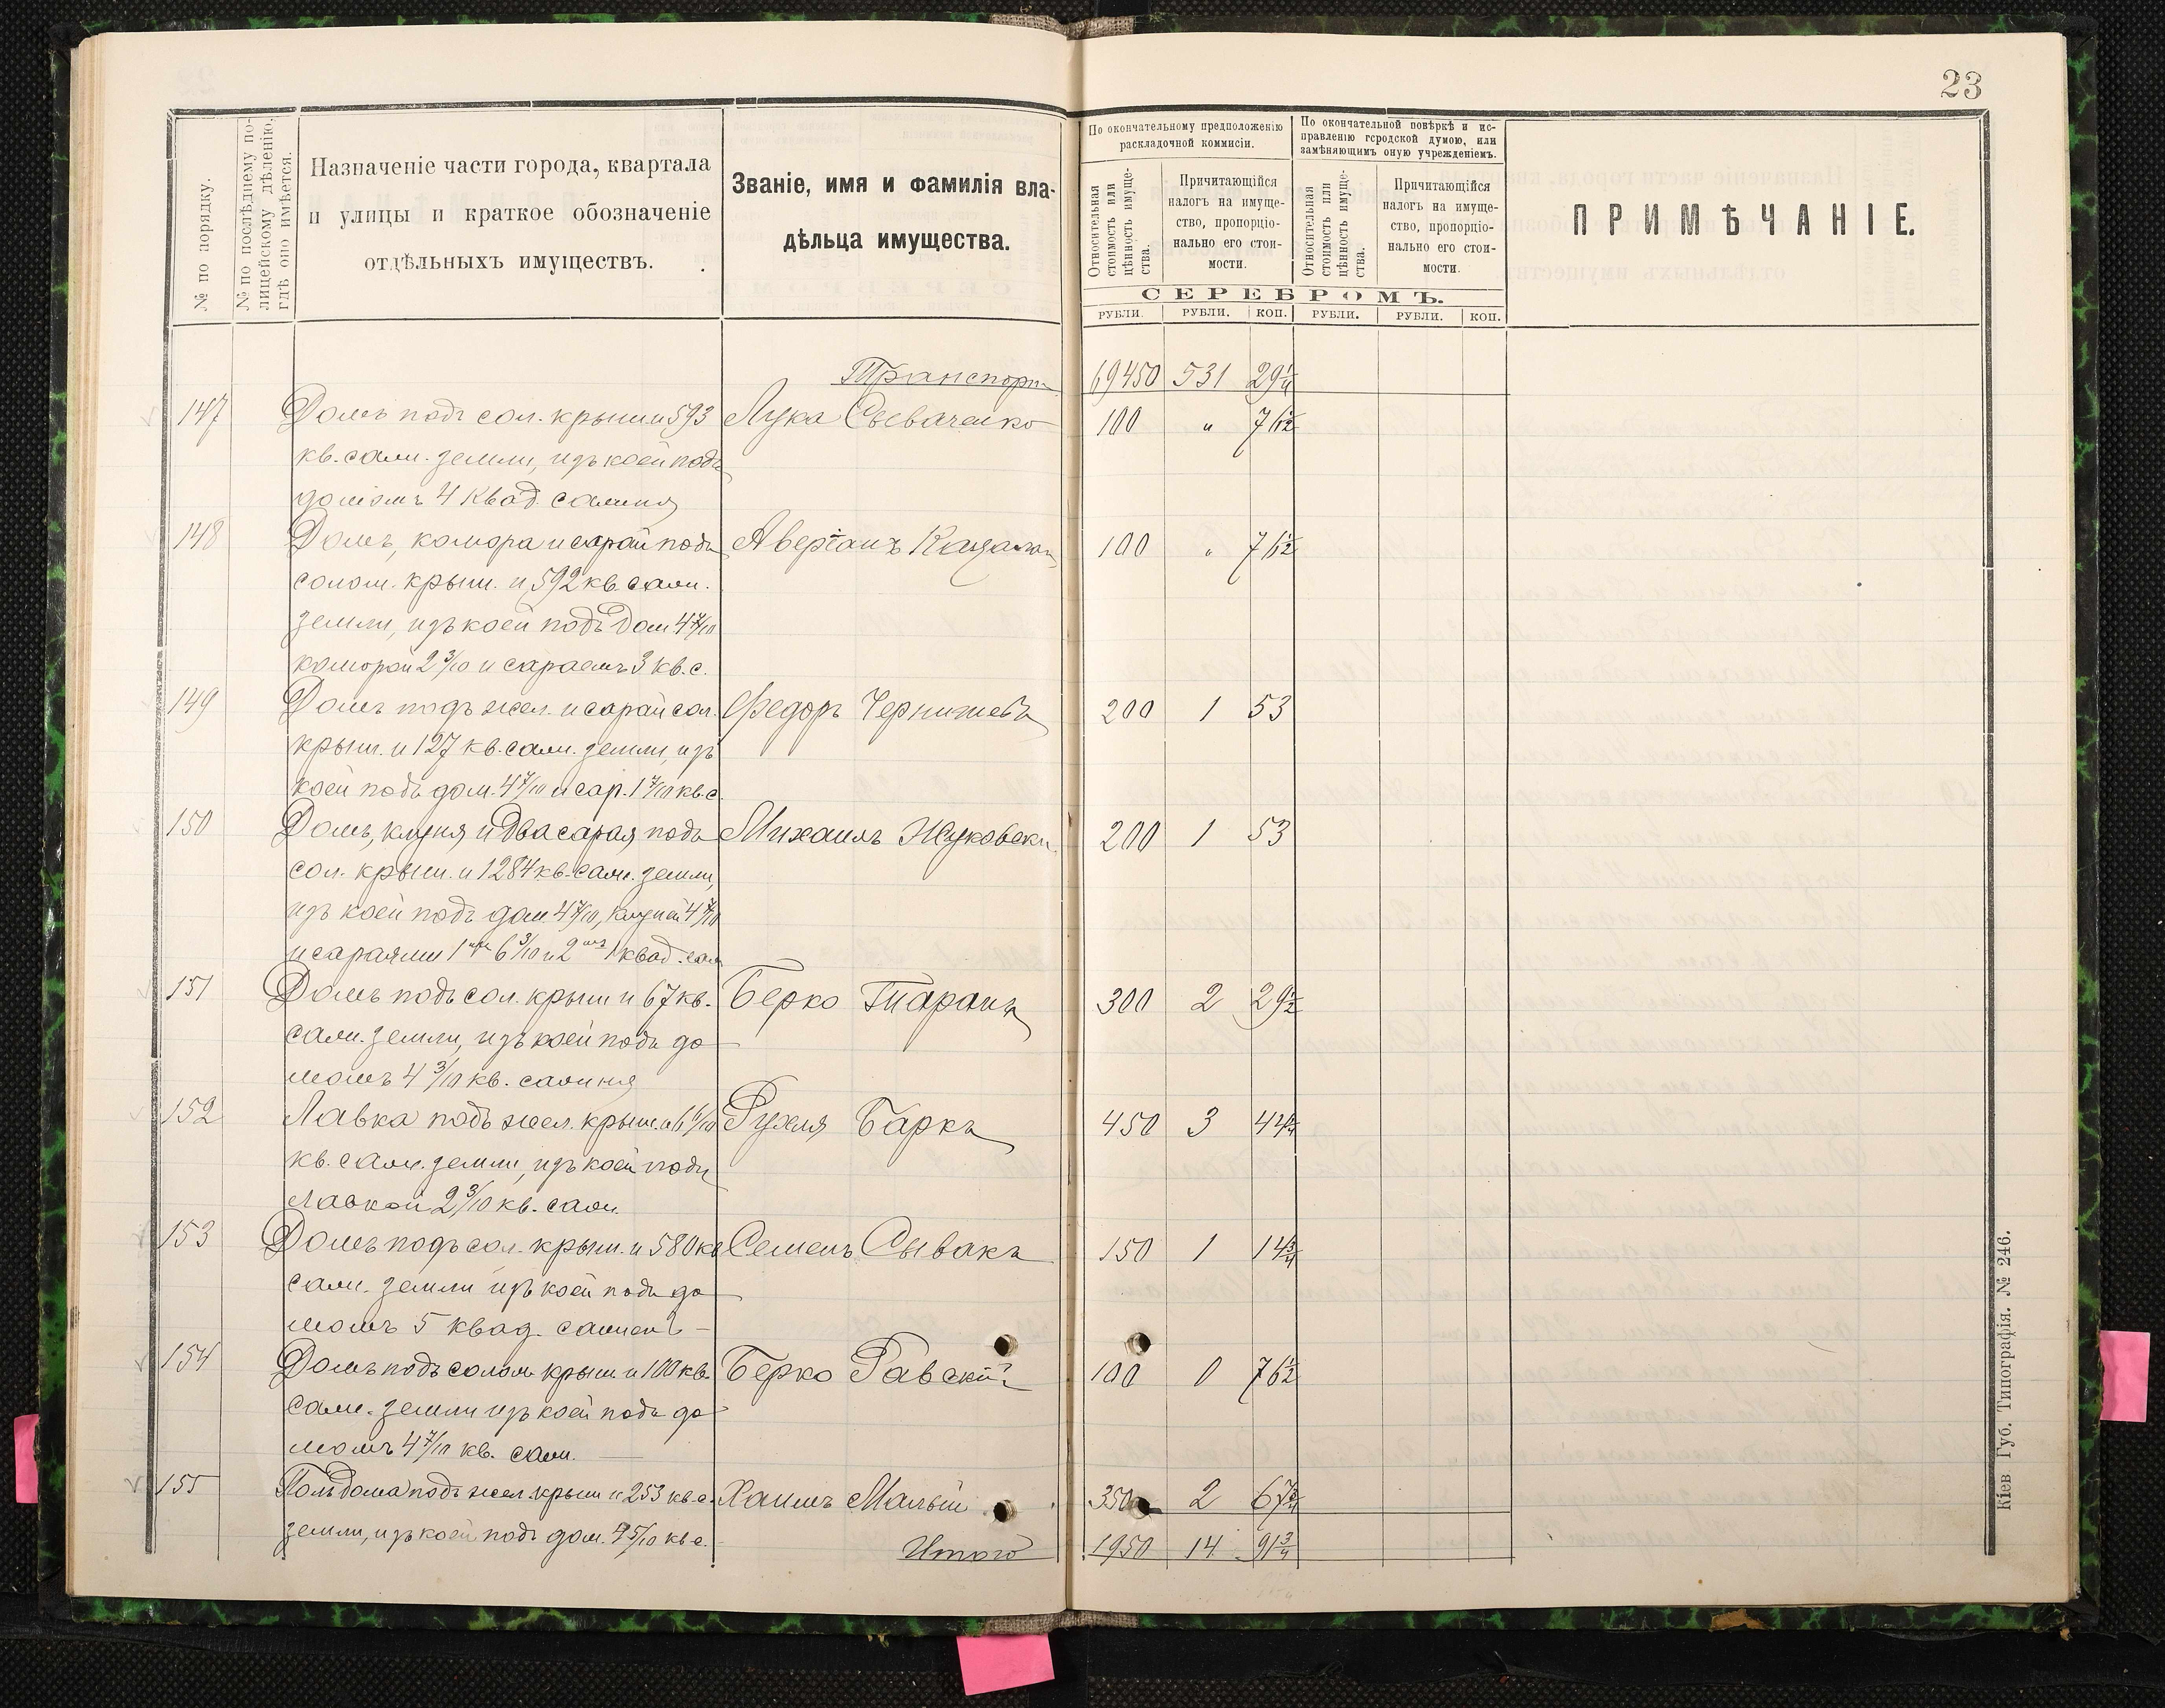 23
№ по порядку.
№ по послѣднему по-
лицейскому дѣленію,
гдѣ оно имѣется.
Назначеніе части города, квартала
и улицы и краткое обозначеніе
отдѣльныхъ имуществъ.
Званіе, имя и фамилія вла-
дѣльца имущества.
По окончательному предположенію
раскладочной коммисіи.
По окончательной повѣркѣ и ис-
правленію городской думою, или
замѣняющимъ оную учрежденіемъ.
Относительная
стоимость или
цѣнность имуще-
ства.
Причитающійся
налогъ на имуще-
ство, пропорціо-
нально его стои-
мости.
Относительная
стоимость или
цѣнность имуще-
ства.
Причитающійся
налогъ на имуще-
ство, пропорціо-
нально его стои-
мости.
ПРИМѢЧАНІЕ.
СЕРЕБРОМЪ.
РУБЛИ. РУБЛИ. КОП. РУБЛИ. РУБЛИ. КОП.
Транспортъ 69450 531 29¼
147 Домъ подъ сол. крыш. и 593 Лука 100 " 76½
кв. саж. земли, изъ коей подъ
домомъ 4 квад. сажня
148 Домъ, комора и сарай подъ Аверіанъ 100 " 76½
солом. крыш. и 592 кв. саж.
земли, изъ коей подъ дом. 4 7/10
коморой 2 3/10 и сараемъ 3 кв. с.
149 Домъ подъ жел. и сарай сол. Федоръ 200 1 53
крыш. и 127 кв. саж. земли, изъ
коей подъ дом. 4 7/10 и сар. 1 7/10 кв. с.
150 Домъ, клуня и два сарая подъ Михаилъ Жуковскі 200 1 53
сол. крыш. и 1284 кв. саж. земли,
изъ коей подъ дом. 4 7/10, клуней 4 7/10
и сараями 1 6 3/10 и 2 1 квад. саж
151 Домъ подъ сол. крыш. и 67 кв. Берко Таранъ 300 2 29½
саж. земли, изъ коей подъ до
момъ 4 3/10 кв. сажня
152 Лавка подъ жел. крыш. и 6 Рухля Баркъ 450 3 44¼
кв. саж. земли, изъ коей подъ
лавкой 2 3/10 кв. саж.
153 Домъ подъ сол. крыш. и 580 кв Семенъ Сывакъ 150 1 14¾
саж. земли изъ коей подъ до
момъ 5 квад. сажень
154 Домъ подъ солом крыш и 100 кв. Берко Равскій 100 0 76½
саж. земли изъ коей подъ до
момъ 4 7/10 кв. саж.
155 Полъ дома подъ жел. крыш и 253 кв с. Хаимъ Малый 350 2 67¾
земли, изъ коей подъ дом. 4 5/10 кв с.
Итого 1950 14 91¾
Кіев Губ. Типографія. № 246.